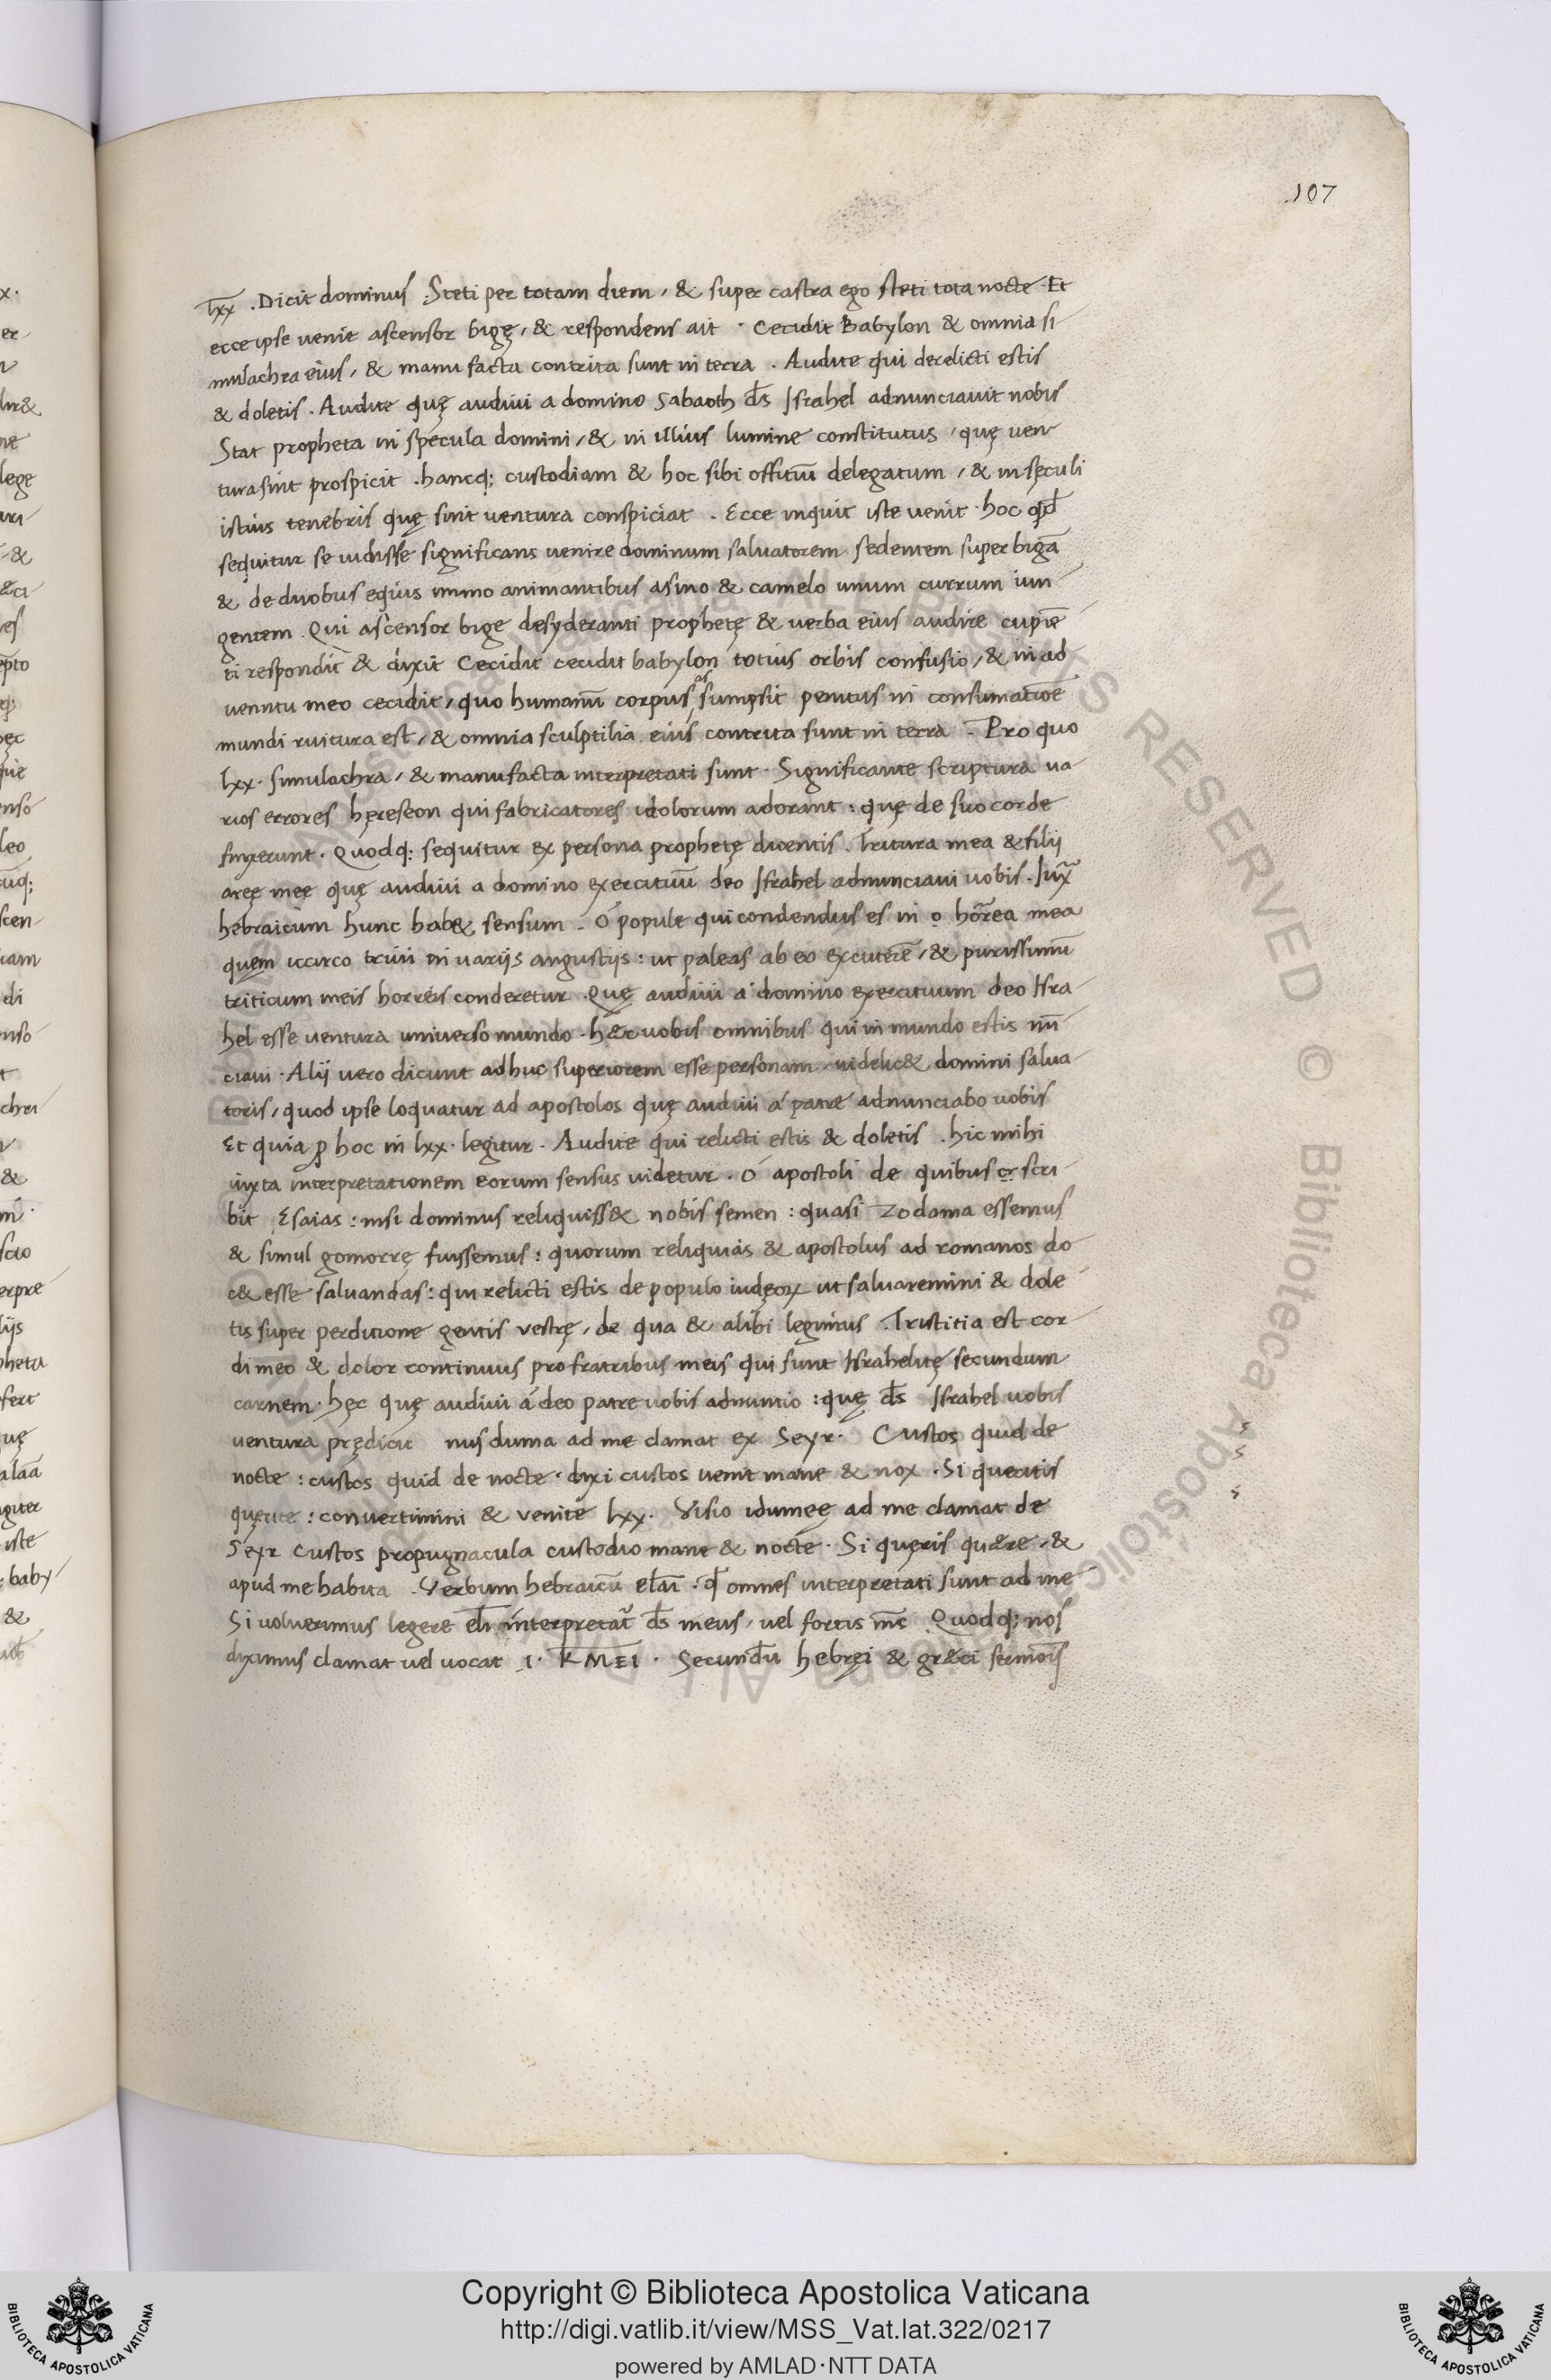 107
lxx . Dicit dominus . Steti per totam diem , & super castra ego steti tota nocte . Et
ecce ipse venit ascensor bigę , & respondens ait . Cecidit Babylon & omnia si
mulachra eius , & manu facta contrita sunt in terra . Audite qui derelicti estis
& doletis . Audite quę audivi a domino Sabaoth ds̄ Israhel adnunciavit nobis
Stat propheta in specula domini , & in illius lumine constitutus , quę ven
tura sint prospicit . hancq; custodiam & hoc sibi offitiū delegatum , & in sęculi
istius tenebris quę sint ventura conspiciat . Ecce inquit iste venit . hoc qd̄
sequitur se vidisse significans venire dominum salvatorem sedentem super bigā
& de duobus equis immo animantibus asino & camelo unum currum iun
gentem . Qui ascensor bige desyderanti prophetę & verba eius audire cupiē
ti respondit & dixit Cecidit cecidit babylon totius orbis confusio , & in ad
ventu meo cecidit , quo humanū corpus assumpsit penitus in consumatiōe
mundi ruitura est , & omnia sculptilia eius contrita sunt in terra . Pro quo
lxx . simulachra , & manufacta interpretati sunt . Significante scriptura va
rios errores hęreseon qui fabricatores idolorum adorant : quę de suo corde
finxerunt . Quodq; sequitur ex persona prophetę dicentis . Tritura mea & filii
aręe meę quę audivi a domino exercituū deo Israhel adnunciavi vobis . Iuxā
hebraicum hunc hab& sensum . O popule qui condendus es in o horrea mea
quem iccirco trivi in variis angustiis : ut paleas ab eo excuterē , & purissimū
triticum meis horreis conderetur . Quę audivi a domino exercituum deo Isra
hel esse ventura universo mundo . hæc vobis omnibus qui in mundo estis nū
ciavi . Alii vero dicunt adhuc superiorem esse personam , videlic& domini salva
toris , quod ipse loquatur ad apostolos quę audivi á patre adnunciabo vobis
Et quia ꝓ hoc in lxx . legitur . Audite qui relicti estis & doletis . hic mihi
iuxta interpretationem eorum sensus videtur . O apostoli de quibus & scri
bit Esaias : nisi dominus reliquiss& nobis semen : quasi Zodama essemus
& simul gomorrę fuissemus : quorum reliquias & apostolus ad romanos do
c& esse salvandas : qui relicti estis de populo iudęoꝝ ut salvaremini & dole
tis super perditione gentis vestrę , de qua & alibi legimus . Tristitia est cor
di meo & dolor continuus pro fratribus meis qui sunt Israhelitę secundum
carnem . hęc quę audivi á deo patre vobis adnuntio : quę ds̄ Israhel vobis
ventura prędicit nus duma ad me clamat ex Seyr . Custos quid de
nocte : custos quid de nocte . dixi custos venit mane & nox . Si queritis
quęrite : convertimini & venite lxx . Visio idumeę ad me clamat de
Seyr custos propugnacula custodio mane & nocte . Si quęris quære , &
apud me habita . Verbum hebraicū elai . qd̄ omnes interpretati sunt ad me
Si voluerimus legere eli interpretat̄ ds̄ meus , vel fortis ms̄ . Quodq; nos
diximus clamat vel vocat . I . KMEI . Secundū hebręi & græci sermōis
Copyright © Biblioteca Apostolica Vaticana
http://digi.vatlib.it/view/MSS_Vat.lat.322/0217
powered by AMLAD·NTT DATA